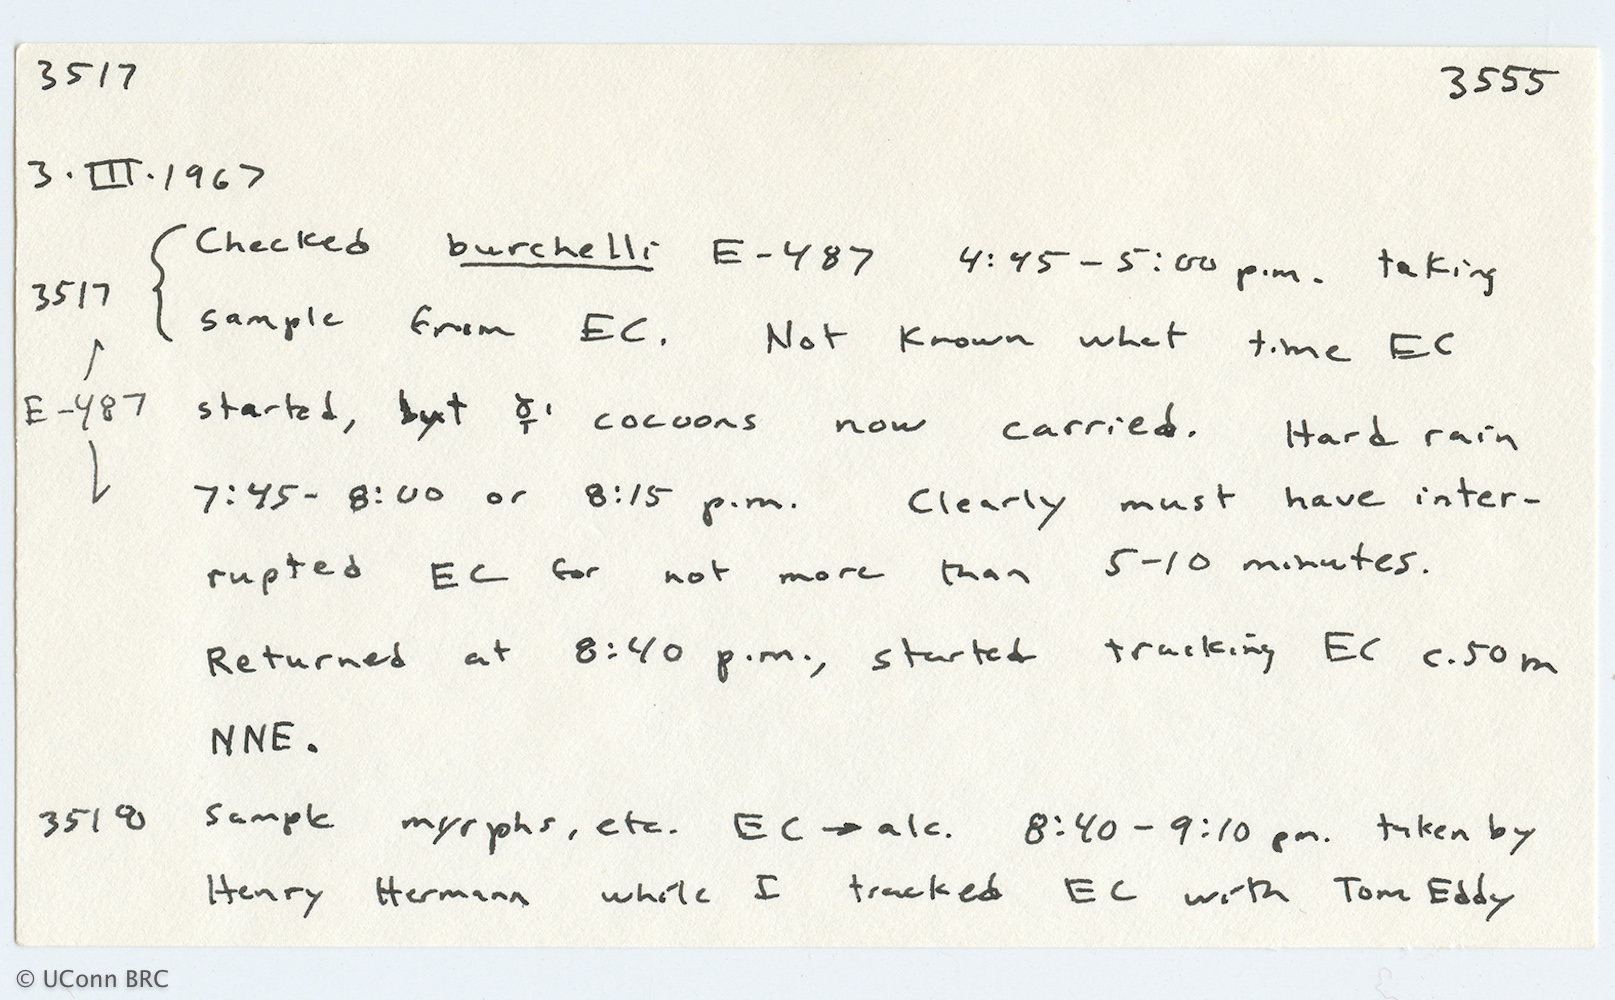 3517 3555
3·III·1967
Checked burchelli E-487 4:45-5:00 p.m. taking
3517 sample from EC. Not known what time EC
E-487 started, but ☿' cocoons now carried. Hard rain
7:45- 8:00 or 8:15 p.m. Clearly must have inter-
rupted EC for not more than 5-10 minutes.
Returned at 8:40 p.m., started tracking EC c.50m
NNE.
3518 Sample myrphs, etc. EC → alc. 8:40-9:10 pm. taken by
Henry Hermann while I tracked EC with Tom Eddy
© UConn BRC